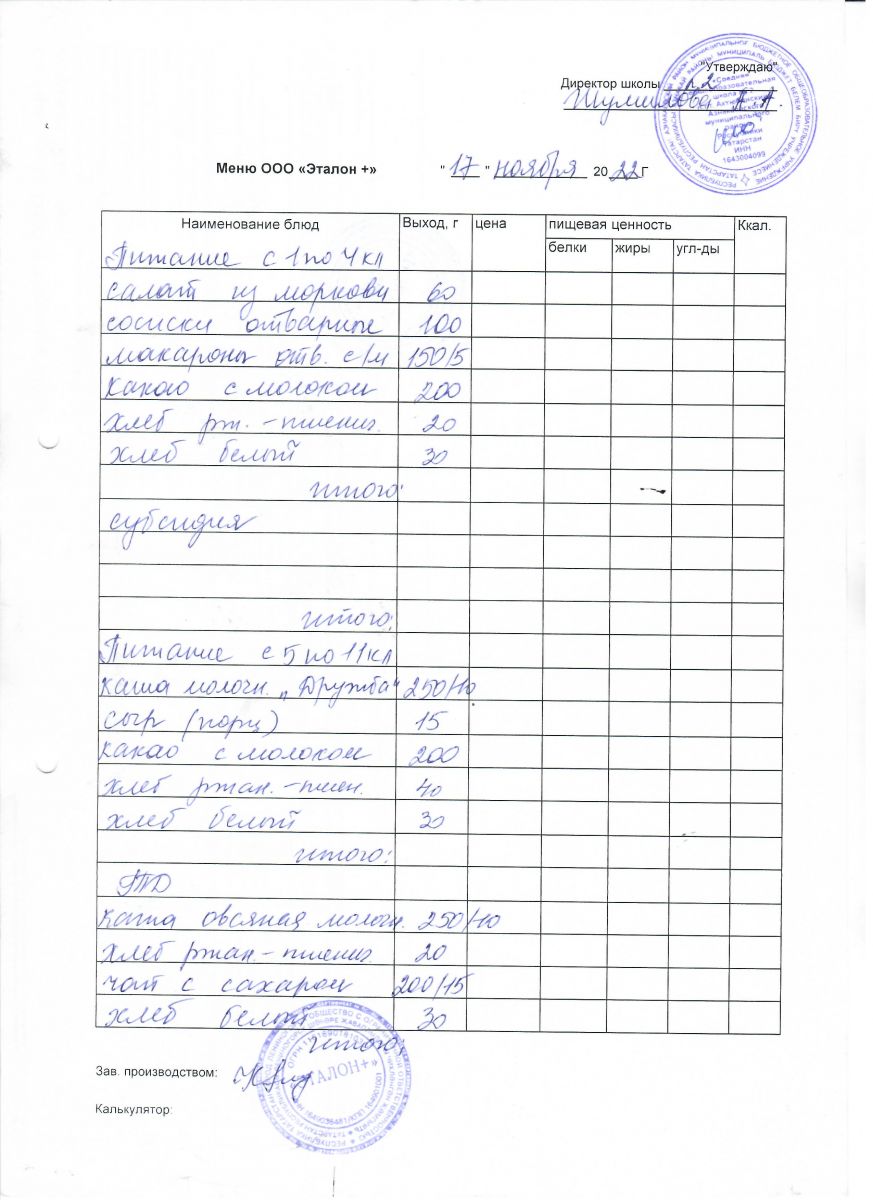 "Утверждаю"
Директор школы №2
Шулимова А.А.
Меню ООО «Эталон +» " 17 " ноября 2022 г
Наименование блюд Выход, г цена пищевая ценность Ккал.
белки жиры угл-ды
Питание с 1 по 4 кл
салат из моркови 60
сосиски отварные 100
макароны отв. с/м 150/5
какао с молоком 200
хлеб рж.-пшенич. 20
хлеб белый 30
итого:
субсидия
итого:
Питание с 5 по 11 кл
каша молочн. „Дружба" 250/10
сыр (порц) 15
какао с молоком 200
хлеб ржан.-пшен. 40
хлеб белый 30
итого:
ГПД
каша овсяная молочн. 250/10
хлеб ржан.-пшенич. 20
чай с сахаром 200/15
хлеб белый 30
итого:
Зав. производством:
Калькулятор:
«Средняя
общеобразовательная
школа №2
Азнакаевского
муниципального
района
Республики
Татарстан
ИНН
1643004099
«ЭТАЛОН+»